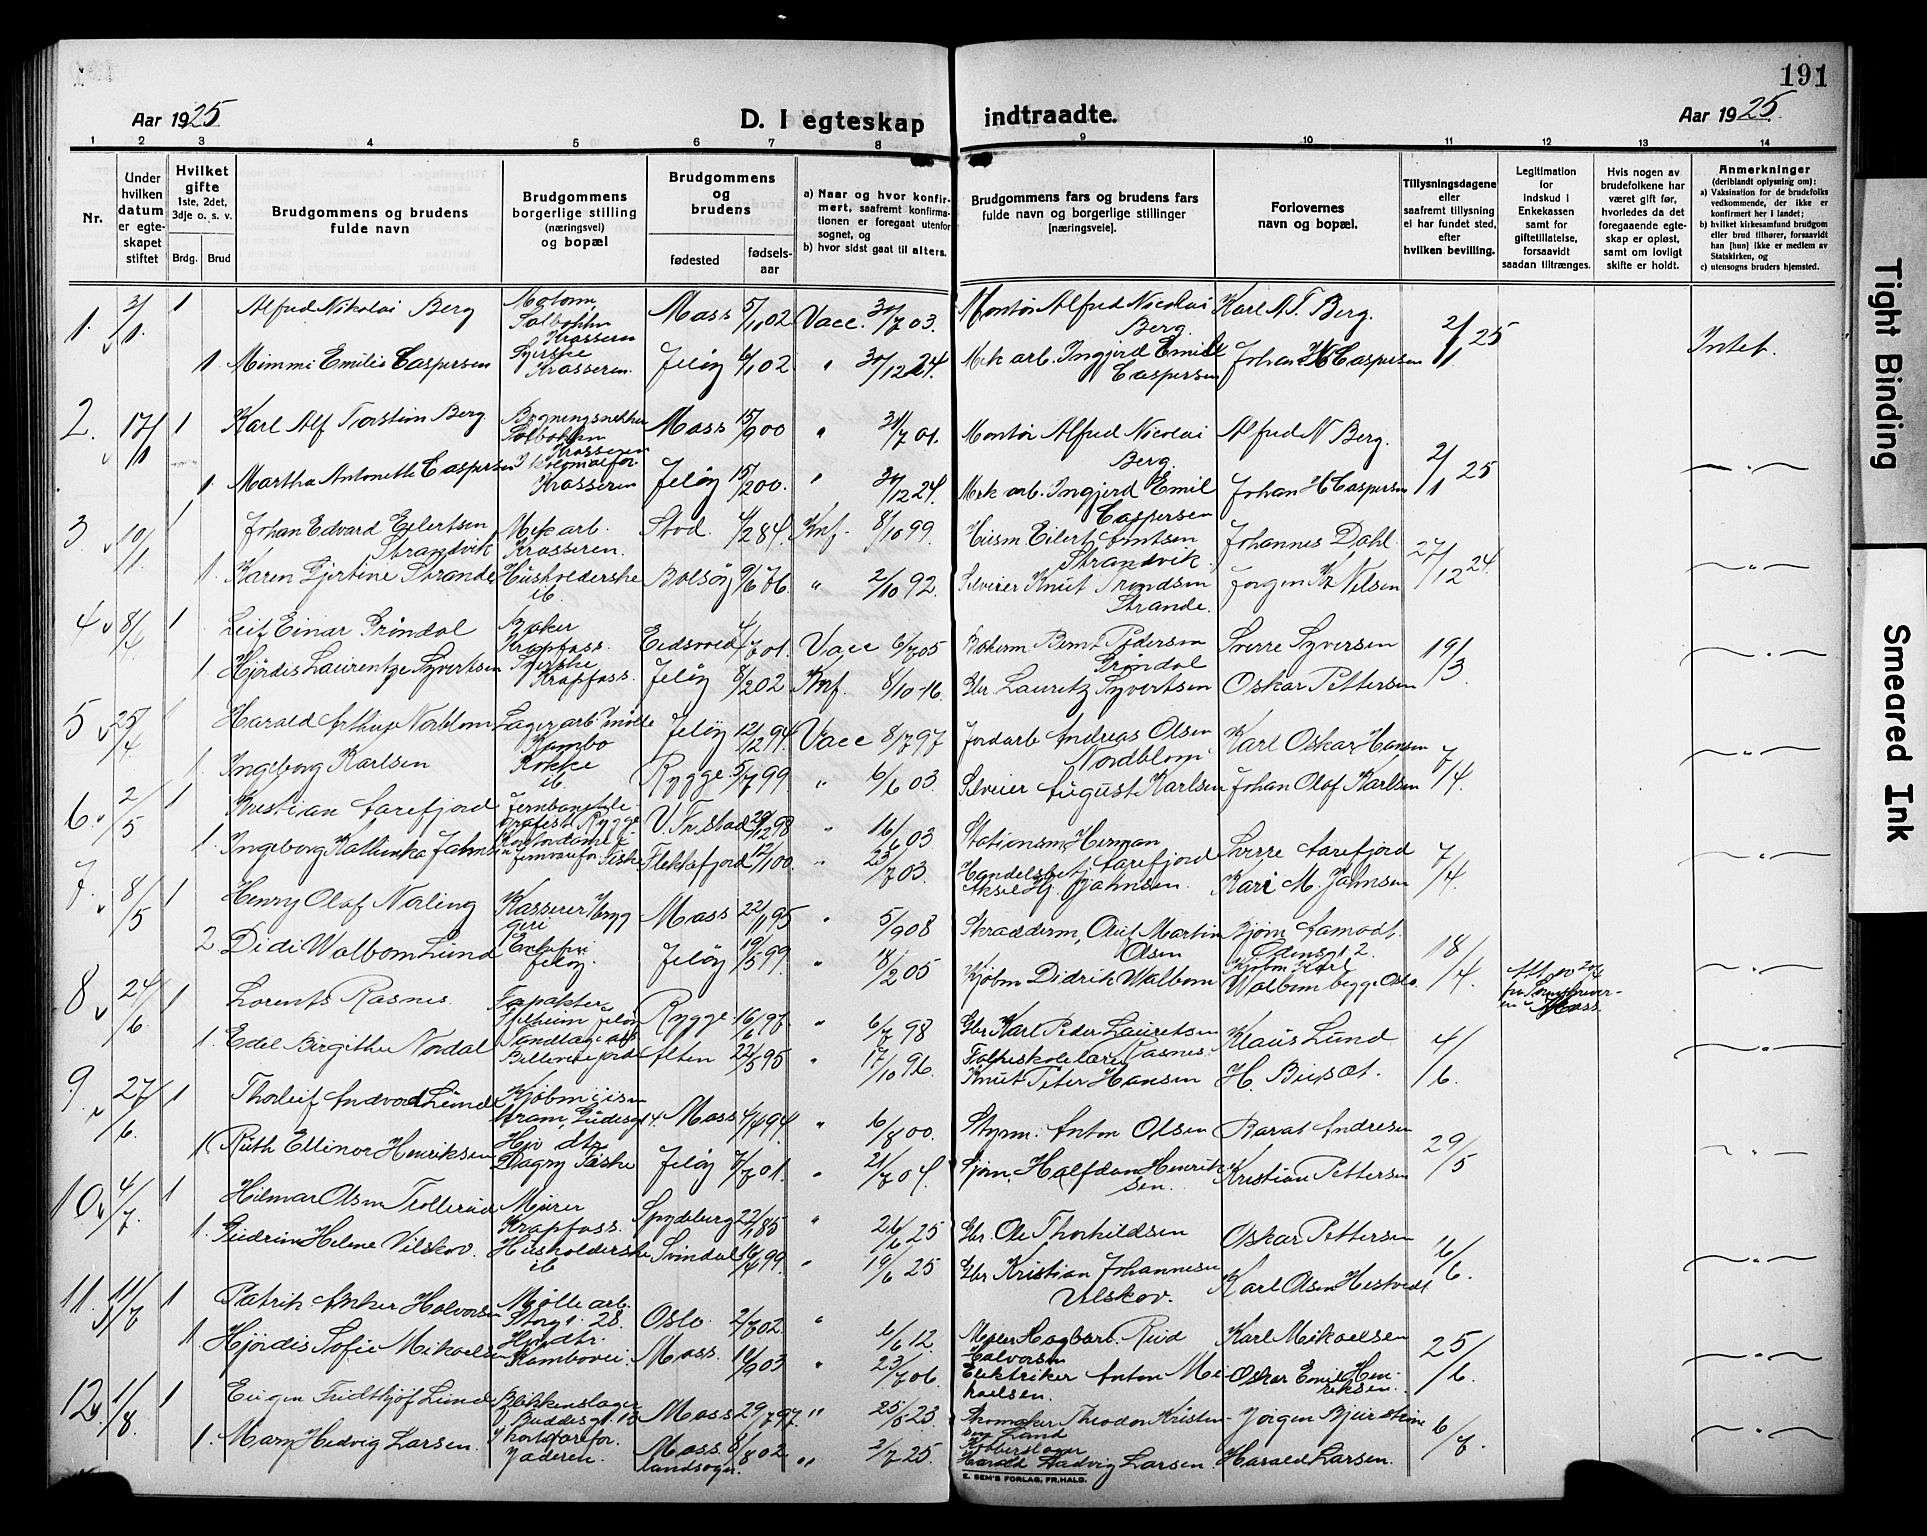 191
Aar 1925
D. I egteskap indtraadte.
Aar 1925
1 2 3 4 5 6 7 8 9 10 11 12 13 14
Nr.
Under hvilken datum er egteskapet stiftet
Hvilket gifte 1ste, 2det, 3dje o. s. v.
Brdg. Brud
Brudgommens og brudens fulde navn
Brudgommens borgerlige stilling (næringsvei) og bopæl
Brudgommens og brudens
fødested
fødselsaar
a) Naar og hvor konfirmert, saafremt konfirmationen er foregaat utenfor sognet, og
b) hvor sidst gaat til alters.
Brudgommens fars og brudens fars fulde navn og borgerlige stillinger [næringsveie].
Forlovernes navn og bopæl.
Tillysningsdagene eller saafremt tillysning ei har fundet sted, efter hvilken bevilling.
Legitimation for Indskud i Enkekassen samt for giftetillatelse, forsaavidt saadan tiltrænges.
Hvis nogen av brudefolkene har været gift før, hvorledes da det foregaaende egteskap er opløst, samt om lovligt skifte er holdt.
Anmerkninger
(deriblandt oplysning om):
a) Vaksination for de brudefolks vedkommende, der ikke er konfirmert her i landet;
b) hvilket kirkesamfund brudgom eller brud tilhører, forsaavidt han [hun] ikke er medlem av Statskirken, og
c) utensogns bruders hjemsted.
1. 3/1. 1 Alfred Nikolai Berg Solbakken Krosseren Moss 5/11 02 Vacc. 30/7 03. Montør Alfred Nicolai Berg. Karl A.T. Berg. 2/1 25 Intet.
1 Mimmi Emilie Caspersen Syerske Krosseren. Jeløy 6/1 02 " 30/12 24. Mek arb. Ingjerd Emil Caspersen Johan H Caspersen
2. 17/1 1 Karl Alf Torstein Berg Bygningsnekker Solbakken Krosseren Moss 15/9 00 " 31/7 01. Montør Alfred Nicolai Berg. Alfred N Berg. 2/1 25 — " —
1. Martha Antonette Caspersen Krosseren Jeløy 15/2 00. " 30/12 24. Mek arb. Ingjerd Emil Caspersen Johan H Caspersen
3 10/1 1 Johan Edvard Eilertsen Strandvik Mek arb. Krosseren. Stod. 4/2 84. Knf. 8/10 99. Husm Eilert Arntsen Strandvik Johannes Dahl. 27/12 24. — " —
1. Karen Gjertine Strande Husholderske ib. Bolsøy 9/6 76 " 2/10 92. Selveier Knut Trondsen Strande. Jørgen Kr Nilsen
4 8/4 1 Leif Einar Grøndal Baker Krapfoss. Eidsvold 4/7 01. Vacc 6/7 05 Bakerm Bernt Pedersen Grøndal Sverre Syversen 19/3 — " —
1 Hjørdis Laurentze Syvertsen Syerske Krapfoss. Jeløy 8/2 02 Knf. 8/10 16. Gbr. Lauritz Syvertsen Oskar Pettersen
5 25/4 1 Harald Arthur Norblom Lagerarb. Kambo Jeløy 12/12 94. Vacc 8/7 97 Jordarb Andreas Olsen Nordblom Karl Oskar Hansen 7/4. — " —
1. Ingeborg Karlsen Kokke ib. Rygge 5/7 99 " 6/6 03 Selveier August Karlsen Johan Olaf Karlsen
6. 2/5 1 Kristian Aarefjord Jernbanetelegrafist Rygge V. Fr.stad 29/12 98 " 16/6 03 Stationsm. Herman Aarefjord Sverre Aarefjord 7/4. — " —
1. Ingeborg Kathinka Jahnsen Flekkefjord 12/1 00. " 23/7 03. Handelsbetj. Aksel Hj. Jahnsen. Kari M. Jahnsen
7. 8/5 1 Henry Olaf Norling Kasserer Moss 22/11 95 " 5/9 08 Skrædderm. Oluf Martin Olsen Bjørn Aamodt. Odensgt 2. 18/4. — " —
2 Didi Walbom Lund Enkefru Jeløy. Jeløy 19/5 99. " 18/2 05 Kjøbm Didrik Walbom Kjøbm Karl Walbom begge Oslo.
8 24/6 1 Lorents Rasnes Rygge 16/6 97 " 6/7 98 Gbr Karl Peder Lauretsen Rasnes. Klaus Lund 4/6. — " —
1. Edel Birgithe Nordal Alten 22/5 95 " 17/10 96. Folkeskolelærer Knut Peter Hansen
9 27/6. 1 Thorleif Andvord Lund Kjøbm Moss 4/4 94 " 6/8 00. Styrm. Anton Olsen Barat Andresen 29/5 — " —
1 Ruth Ellinor Henriksen Jeløy 7/7 01. " 21/7 04. Sjøm. Halfdan Henriksen. Kristian Pettersen
10 4/7. 1 Hilmar Olsen Trollerud Murer Krapfoss. Spydeberg 22/1 85 " 26/6 25 Gbr. Ole Thorkildsen Oskar Pettersen 16/6. — " —
1. Gudrun Helene Vilskov. Husholderske ib Svindal 16/4 99. " 19/6 25 Gbr Kristian Johannesen Vilskov. Karl Olsen Hestvedt
11. 11/7 1 Patrik Anker Halvorsen Mølle arb. Storg. 28. Oslo 2/7 02. " 6/6 12. Maler Hagbart Ruud Halvorsen Karl Mikaelsen 25/6. — " —
1 Hjørdis Sofie Mikaelsen Hj.dtr. Kambovei. Moss. 10/9 03 " 23/7 06. Elektriker Anton Mikaelsen. Oskar Emil Henriksen.
12. 1/8. 1 Eugen Fridthjof Lund Moss 29/7 97. " 25/5 23. Skomaker Theodor Kristensen Lund Jørgen Bjerstine 6/7. — " —
1. Mary Hedvig Larsen. Moss landsogn. 8/8 02 " 2/7 25. Kobberslager Harald Ludvig Larsen. Harald Larsen.
E. SEM'S FORLAG, FR.HALD.
Tight Binding
Smeared Ink